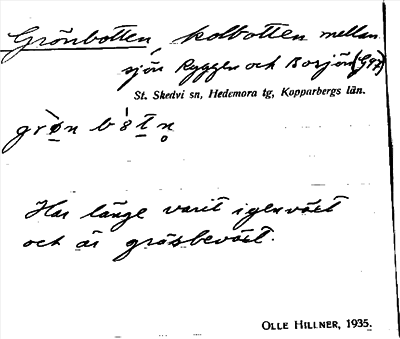 Grönbotten, kolbotten mellan
sjön Ryggen och Borsjön (G97)
St. Skedvi sn, Hedemora tg, Kopparbergs län.
grø̀n b 8́ t n̥
Har länge varit igenväxt
och är gräsbeväxt.
OLLE HILLNER, 1935.